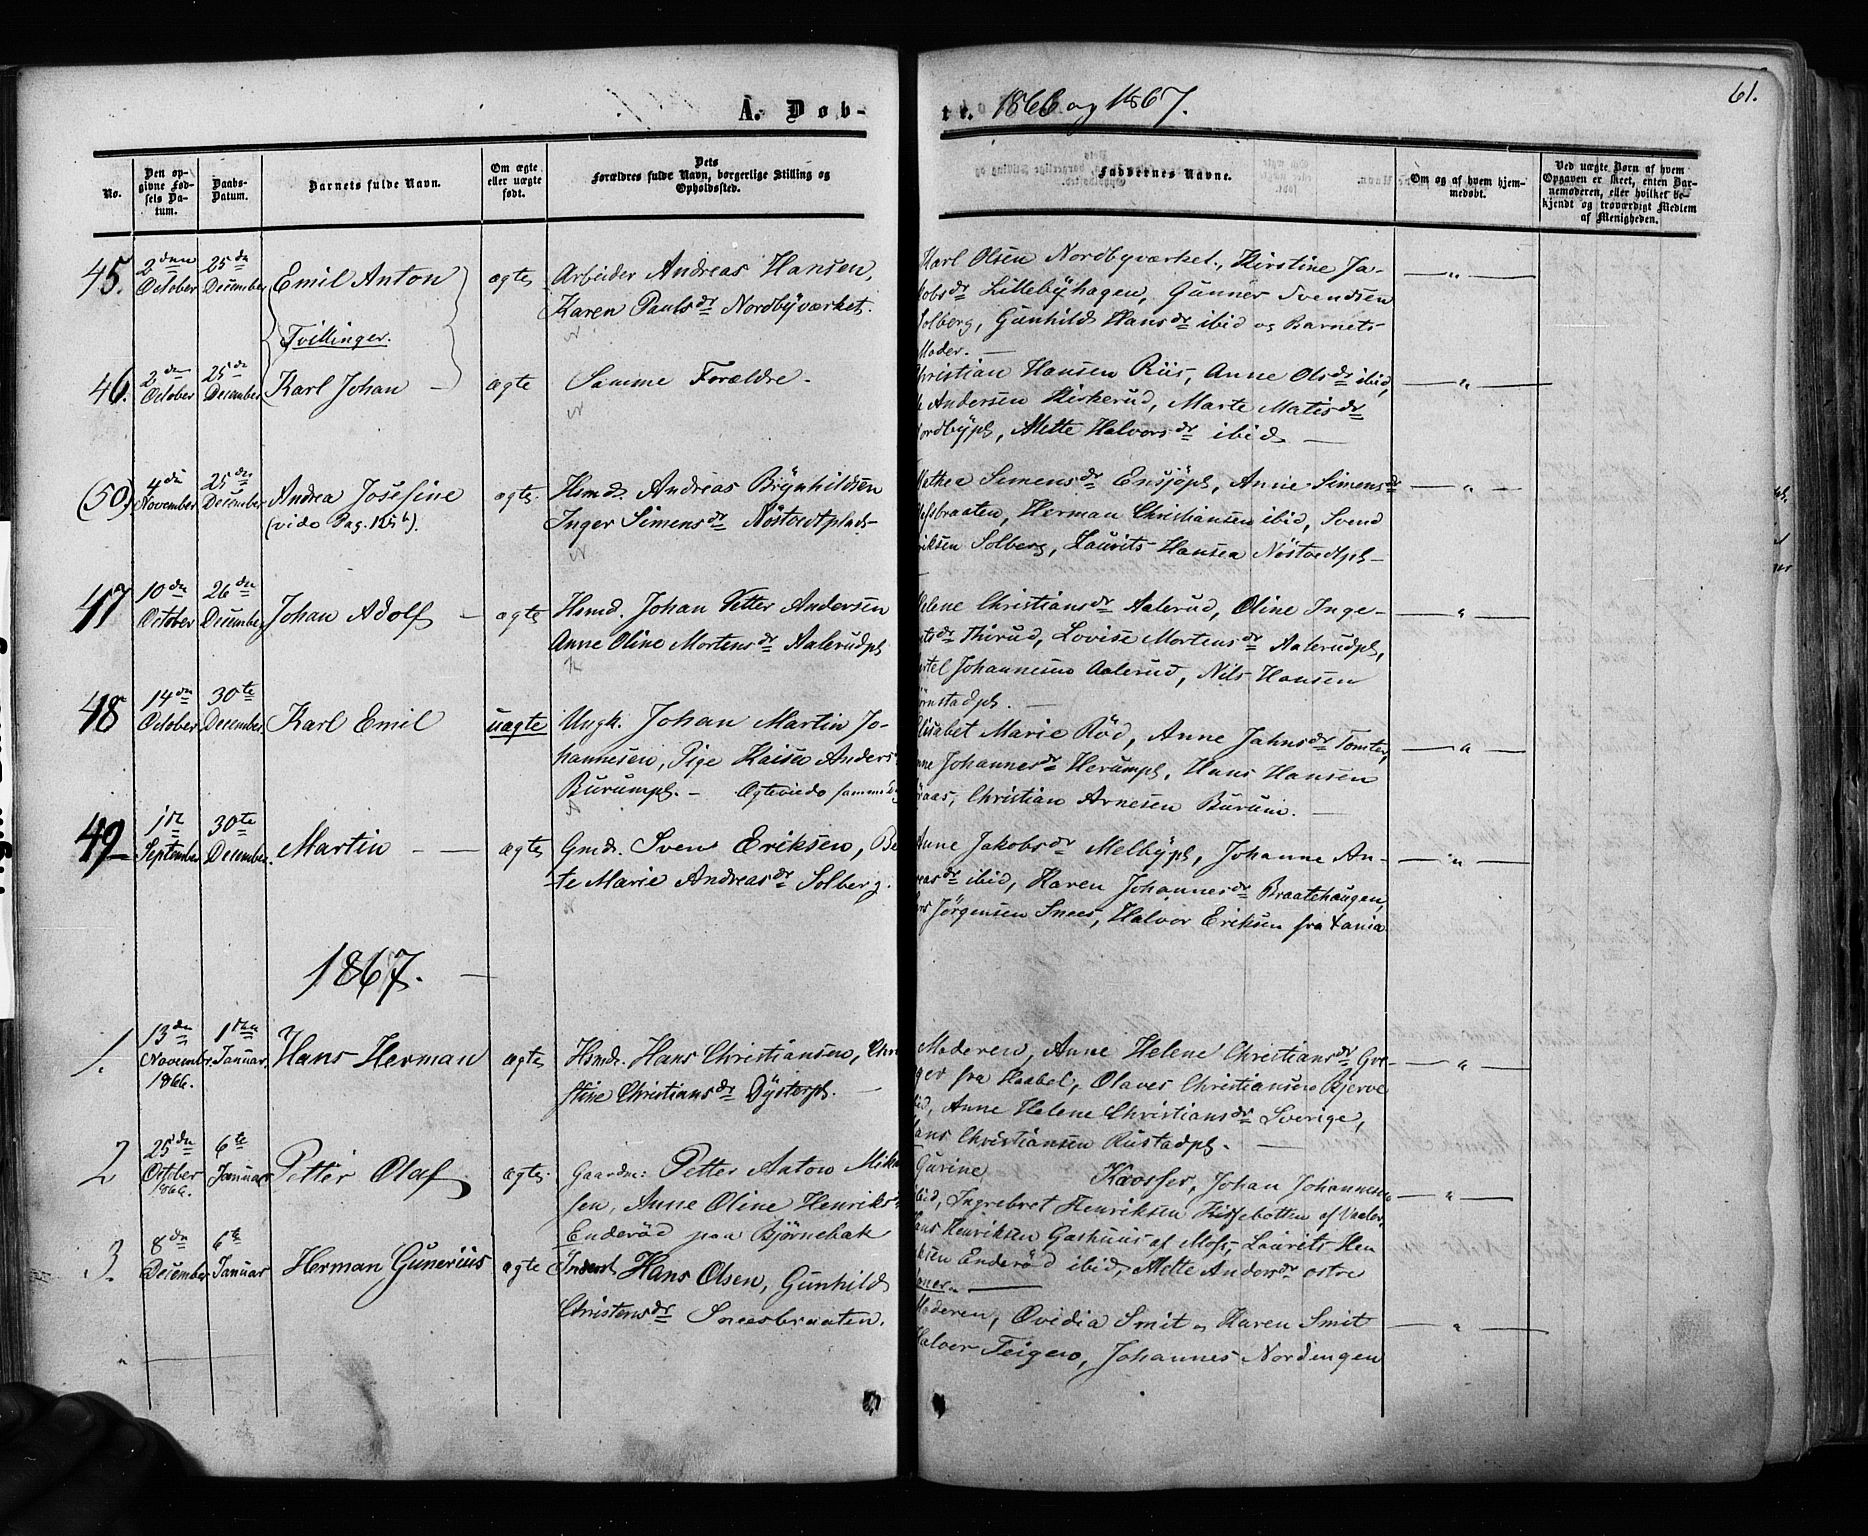 A. Døb-
te. 1866 og 1867.
61.
No.
Den op-
givne Fød-
sels Da-
tum.
Daabs-
Datum.
Barnets fulde Navn.
Om ægte
eller uægte
født.
Dets
Forældres fulde Navn, borgerlige Stilling og
Opholdssted.
Faddernes Navne.
Om og af hvem hjem-
medøbt.
Ved uægte Børn af hvem
Opgaven er skeet, enten Bar-
nemoderen, eller hvilket be-
kjendt og troværdigt Medlem
af Menigheden.
45. 2den October 25de December Emil Anton ægte Arbeider Andreas Hansen,
Karen Paulsdr Nordbyværket.
Karl Olsen Nordbyværket, Kirstine Ja-
kobsdr Lillebyhagen, Gunner Svendsen
Solberg, Gunhild Hansdr ibid og Barnets
Moder. — „ —
Tvillinger.
46. 2den October 25de December Karl Johan ægte Samme Forældre.
Christian Hansen Riis, Anne Olsdr ibid,
Andersen Kiskerud, Marte Matisdr
Nordbypl, Mette Halvorsdr ibid — „ —
(50) 4de November 25de December Andrea Josefine
(vide Pag. 155b).
ægte Hsmd. Andreas Brynhildsen
Inger Simensdr Nöstvedtplads
Mathea Simensdr Ensjöpl, Anne Simensdr
braaten, Herman Christiansen ibid, Svend
Eriksen Solberg, Laurits Hansen Nöstvedtpl — „ —
47 10de October 26de December Johan Adolf ægte Hsmd. Johan Petter Andersen
Anne Oline Mortensdr Aalerudpl
Helene Christiansdr Aalerud, Oline Inge-
dr Thirud, Lovise Mortensdr Aalerudpl,
Johannesen Aalerud, Nils Hansen
— „ —
48 14de October 30te December Karl Emil uægte Ungk. Johan Martin Jo-
hannesen, Pige Kaisen Anders
Burumpl. — Ægteviede samme Dag
Elisabet Marie Röd, Anne Jahnsdr Tomter,
Johannesdr Herumpl, Hans Hansen
Christian Arnesen Burum. — „ —
49 1ste September 30te December Martin ægte Gmd. Sven Eriksen, Be-
te Marie Andreasdr Solberg.
Anne Jakobsdr Melbypl, Johanne An-
reasdr ibid, Karen Johannesdr Braatehaugen,
Jörgensen Snees, Halvor Eriksen fra Xania — „ —
1867.
1. 13de November 1866. 1ste Januar Hans Herman ægte Hsmd. Hans Christiansen, Chri-
stine Christiansdr Dysterpl. —
Moderen, Anne Helene Christiansdr
fra Haabel, Olaves Christiansen Kjerve
ibid, Anne Helene Christiansdr Sverige,
Hans Christiansen Rustadpl. — „ —
2 25de October 1866. 6te Januar Petter Olaf ægte Gaardm: Petter Anton Mik
sen, Anne Oline Henriks
Enderöd paa Björnebek
Gurine Kaosser, Johan Johannesen
ibid, Ingrebret Henriksen Kissebotten af Vaaler,
Hans Henriksen Gashuus af Moss, Laurits Hen
riksen Enderöd ibid, Mette Andersdr östre
— „ —
3. 8de December 6te Januar Herman Gunerius ægte Inderst Hans Olsen, Gunhild
Christensdr Sneesbraaten.
Moderen, Ovidia Smit og Karen Smit
Halvor Teigen, Johannes Nordengen — „ —